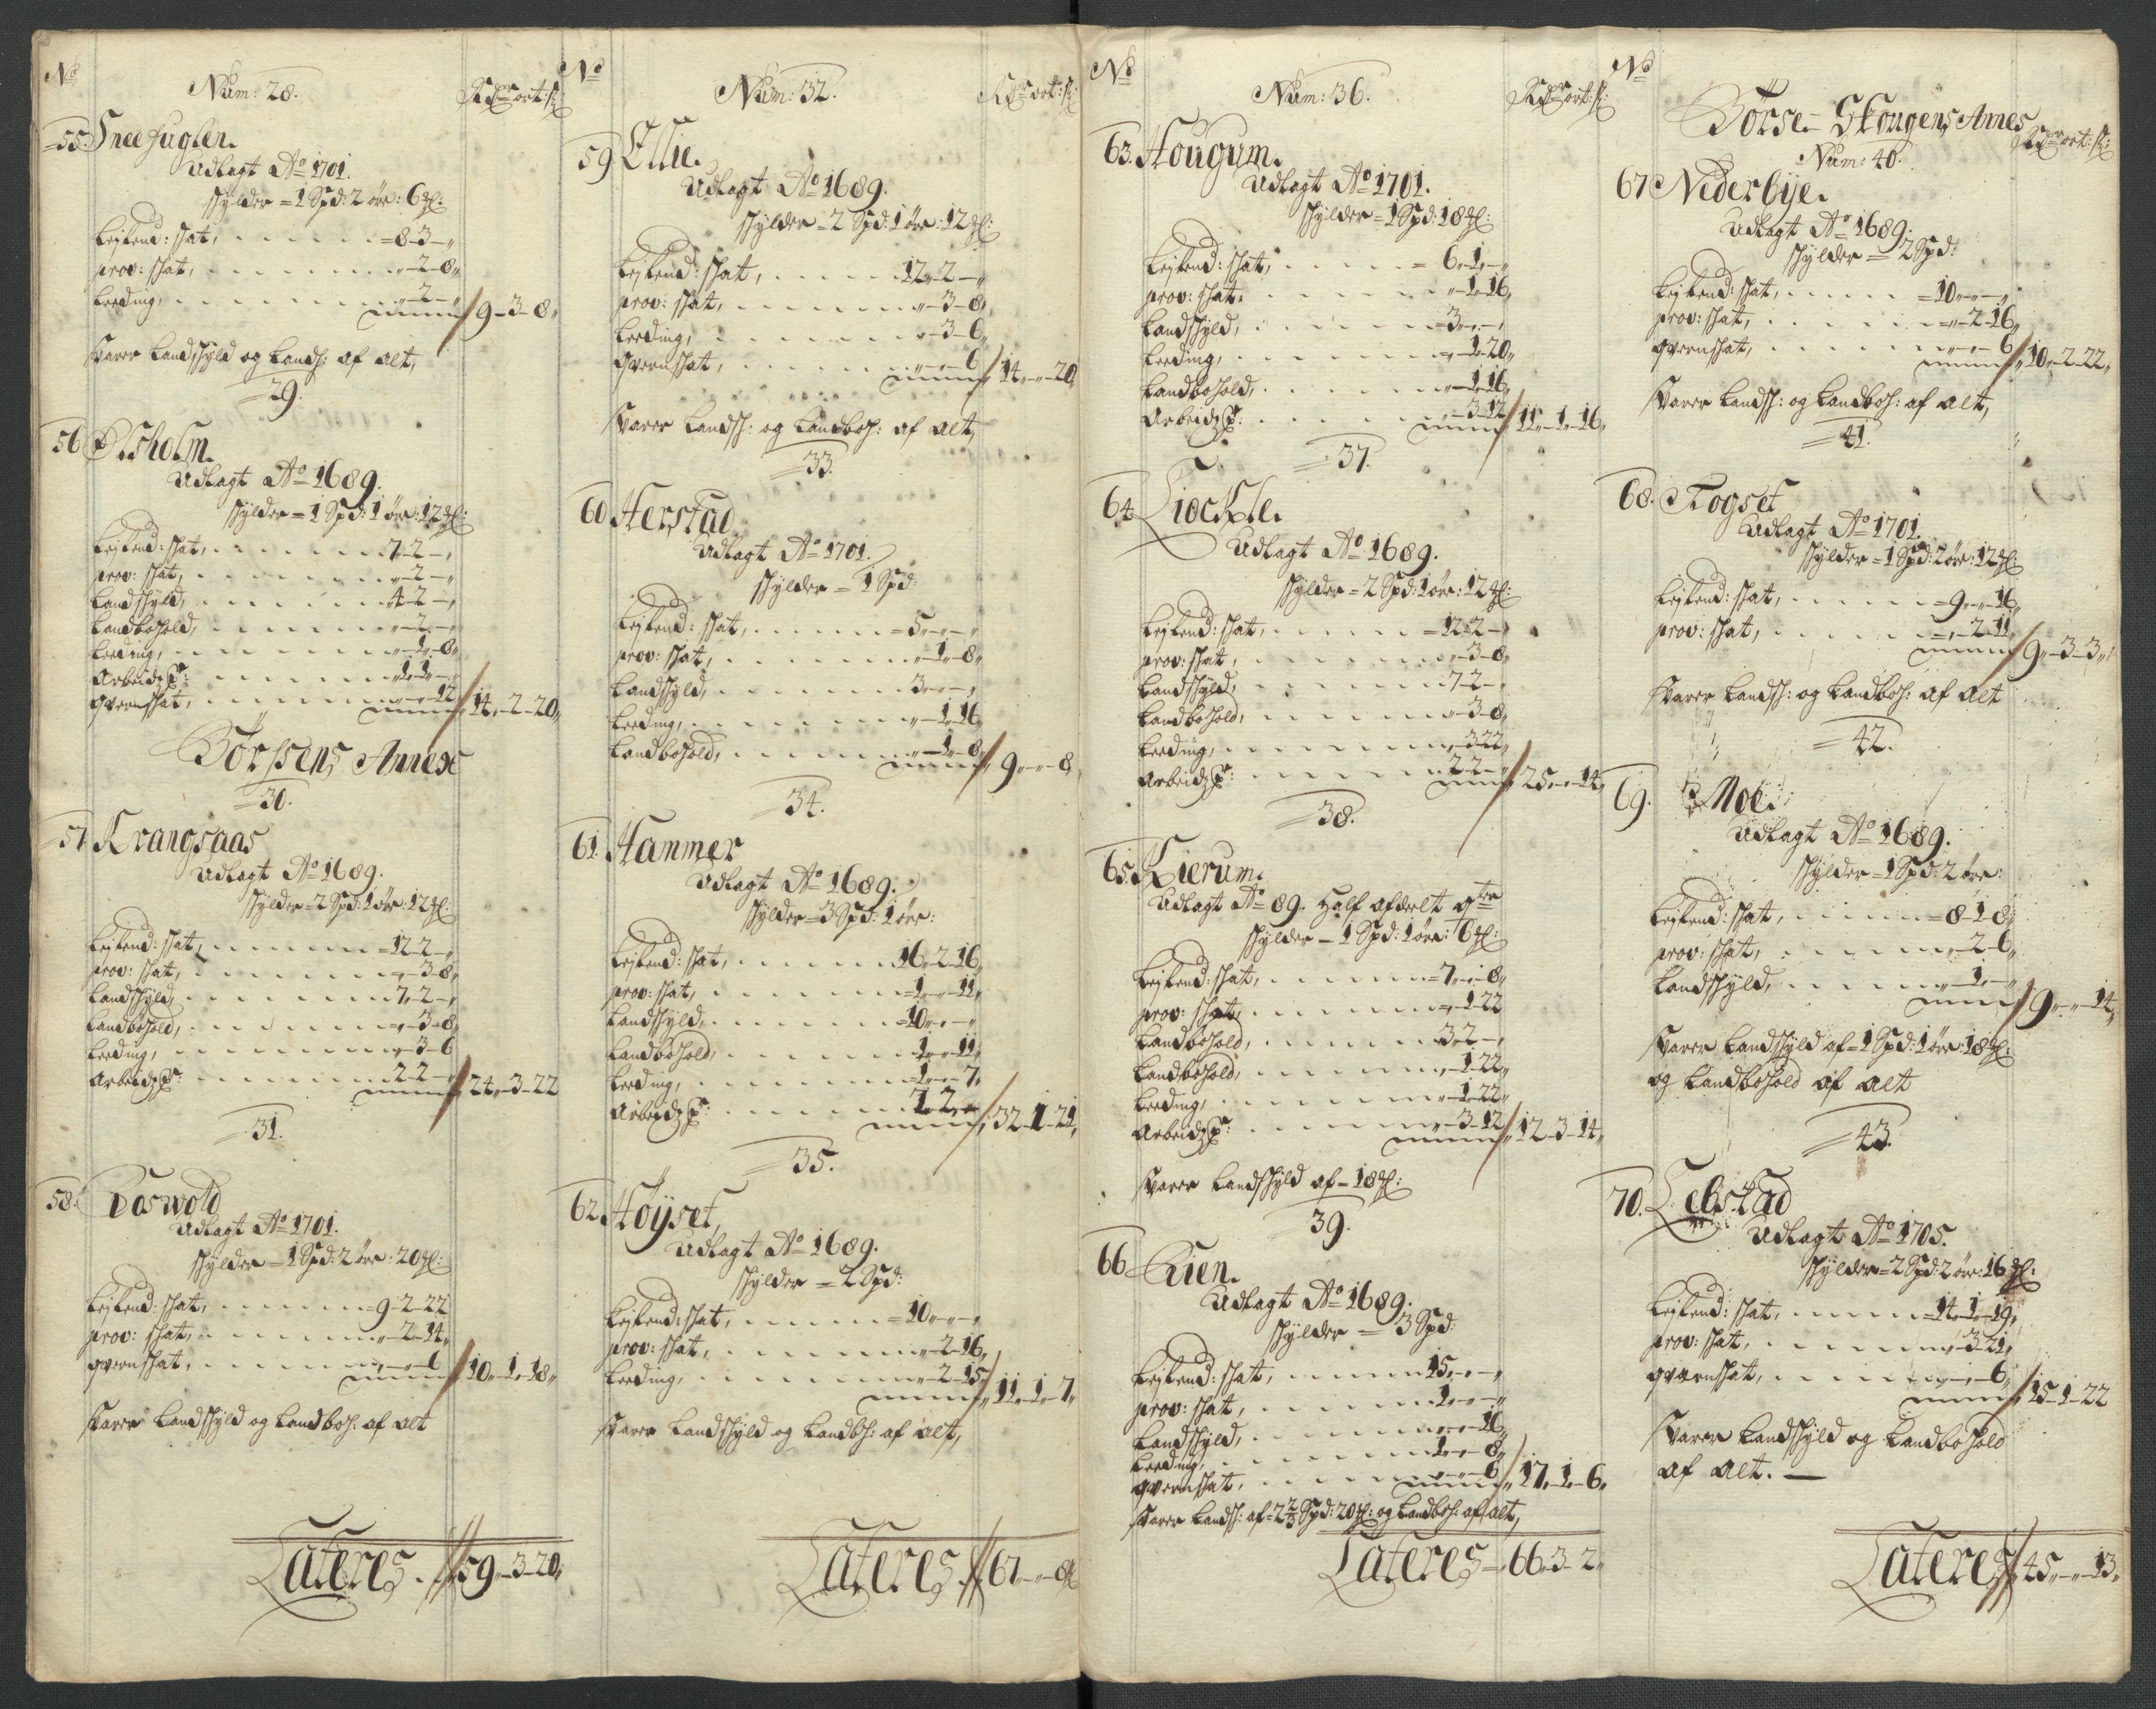 No
Num: 28.
Rdr ort: s:
55. Sneefuglen.
Udlagt Ao 1701.
schylder = 1 Spd: 2 öre: 6 #:
Leylend: schat, = 8 - 3 - „
prov: schat, „ - 2 - 8„
Leeding, „ - 2 - „
9 - 3 - 8„
Svarer Landschyld og Landb: af alt,
29.
56 Ölsholm.
Udlagt Ao 1689.
schylder = 1 Spd: 1 öre: 12 #:
Leylend: schat, 7 - 2 - „
prov: schat, „ - 2 - „
Landschyld, 4 - 2 - „
Landbohold, „ - 2 - „
Leeding, „ - 1 - 8„
Arbeidz P: 1 - 1 - „
qvernschat, „ - „ - 12
14 - 2 - 20„
Börssens Annex
30.
57. Krangsaas
Udlagt Ao 1689.
schylder = 2 Spd: 1 öre: 12 #:
Leylend: schat, = 12 - 2 - „
prov: schat, „ - 3 - 8„
Landschyld, 7 - 2 - „
Landbohold, „ - 3 - 8„
Leeding, „ - 3 - 6
Arbeidz P: 2 - 2 - „
24 - 3 - 22
31.
58. Toswold
Udlagt Ao 1701.
schylder = 1 Spd: 2 öre: 20 #:
Leylend: schat, = 9 - 2 - 22
prov: schat, „ - 2 - 14„
qvernschat, „ - „ - 6
10 - 1 - 18„
Svarer Landschyld og Landboh: af alt
Lateres. 59 - 3 - 20„
No
Num: 32.
Rdr ort: s:
59 Ellie.
Udlagt Ao 1689.
schylder = 2 Spd: 1 öre: 12 #:
Leylend: schat, 12 - 2 - „
prov: schat, „ - 3 - 8„
Leeding, „ - 3 - 6„
qvernschat, „ - „ - 6
14 - „ - 20„
Svarer Landsch: og Landboh: af alt,
33.
60 Herstad
Udlagt Ao 1701.
schylder = 1 Spd:
Leylend: schat, = 5 - „ - „
prov: schat, „ - 1 - 8„
Landschyld, 3 - „ - „
Leeding, „ - 1 - 16„
Landbohold, „ - 1 - 8„
9 - „ - 8„
34.
61. Hammer
Udlagt Ao 1689.
schylder = 3 Spd: 1 öre:
Leylend: schat, 16 - 2 - 16„
prov: schat, = 1 - „ - 11„
Landschyld, = 10 - „ - „
Landbohold, 1 - „ - 11„
Leeding, 1 - „ - 7„
Arbeidz P: 1 - 2 - „
32 - 1 - 21„
35.
62. Höyset,
Udlagt Ao 1689.
schylder = 2 Spd:
Leylend: schat, = 10 - „ - „
prov: schat, „ - 2 - 16„
Leeding, „ - 2 - 15„
11 - 1 - 7„
Svarer Landschyld og Landbh: af alt,
Lateres. 67 - „ - 8
No
Num: 36.
Rdr ort: s:
63. Hougum.
Udlagt Ao 1701.
schylder = 1 Spd: 18 #:
Leylend: schat, = 6 - 1 - „
prov: schat, „ - 1 - 16„
Landschyld, 3 - „ - „
Leeding, „ - 1 - 20„
Landbohold, „ - 1 - 16„
Arbeidz P: „ - 3 - 12
11 - 1 - 16„
37.
64. Liockle.
Udlagt Ao 1689.
schylder = 2 Spd: 1 öre: 12 #:
Leylend: schat, = 12 - 2 - „
prov: schat, „ - 3 - 8„
Landschyld, 7 - 2 - „
Landbohold, „ - 3 - 8„
Leeding, „ - 3 - 22„
Arbeidz P: 2 - 2 - „
25 - „ - 14„
38.
65. Kierum.
Udlagt Ao 89. Half afdeelt qtre
schylder = 1 Spd: 1 öre: 6 #:
Leylend: schat, = 7 - „ - 8„
prov: schat, „ - 1 - 22
Landbohold, 3 - 2 - „
Landbohold, „ - 1 - 22„
Leeding, „ - 1 - 22„
Arbeidz P: „ - 3 - 12
12 - 3 - 14„
Svarer Landschyld af = 18 #:
39.
66 Lien.
Udlagt Ao 1689.
schylder = 3 Spd:
Leylend: schat, 15 - „ - „
prov: schat, 1 - „ - „
Landschyld, „ - „ - 16„
Leeding, 1 - „ - 8„
qvernschat, „ - „ - 6
17 - 1 - 6„
Svarer Landsch: af = 2 2/3 Spd: 20 #: og Landboh: af alt,
Lateres = 66 - 3 - 2„
No
Börse = Skougens Annex
Rdr ort: s:
Num: 40.
67 Nederbye.
Udlagt Ao 1689.
schylder = 2 Spd:
Leylend: schat, = 10 - „ - „
prov: schat, „ - 2 - 16„
qvernschat, „ - „ - 6
10 - 2 - 22„
Svarer Landsch: og Landboh: af alt,
41.
68. Rogset
Udlagt Ao 1701.
schylder = 1 Spd: 2 öre: 12 #:
Leylend: schat, = 9 - „ - 16„
prov: schat, „ - 2 - 11„
9 - 3 - 3„
Svarer Landsch: og Landboh: af alt
42.
69. Moe.
Udlagt Ao 1689.
schylder = 1 Spd: 2 öre:
Leylend: schat, = 8 - 1 - 8„
prov: schat, „ - 2 - 6„
Landschyld, „ - 1 - „
9 - „ - 14„
Svarer Landschyld af = 1 Spd: 1 öre: 18 #:
og Landbohold af alt
43.
70. Lebstad
Udlagt Ao 1705.
schylder = 2 Spd: 2 öre: 16 #:
Leylend: schat, 14 - 1 - 19„
prov: schat, „ - 3 - 21„
qvernschat, „ - „ - 6„
15 - 1 - 22
Svarer Landschyld og Landbohold
af alt. —
Lateres 45 - „ - 13„